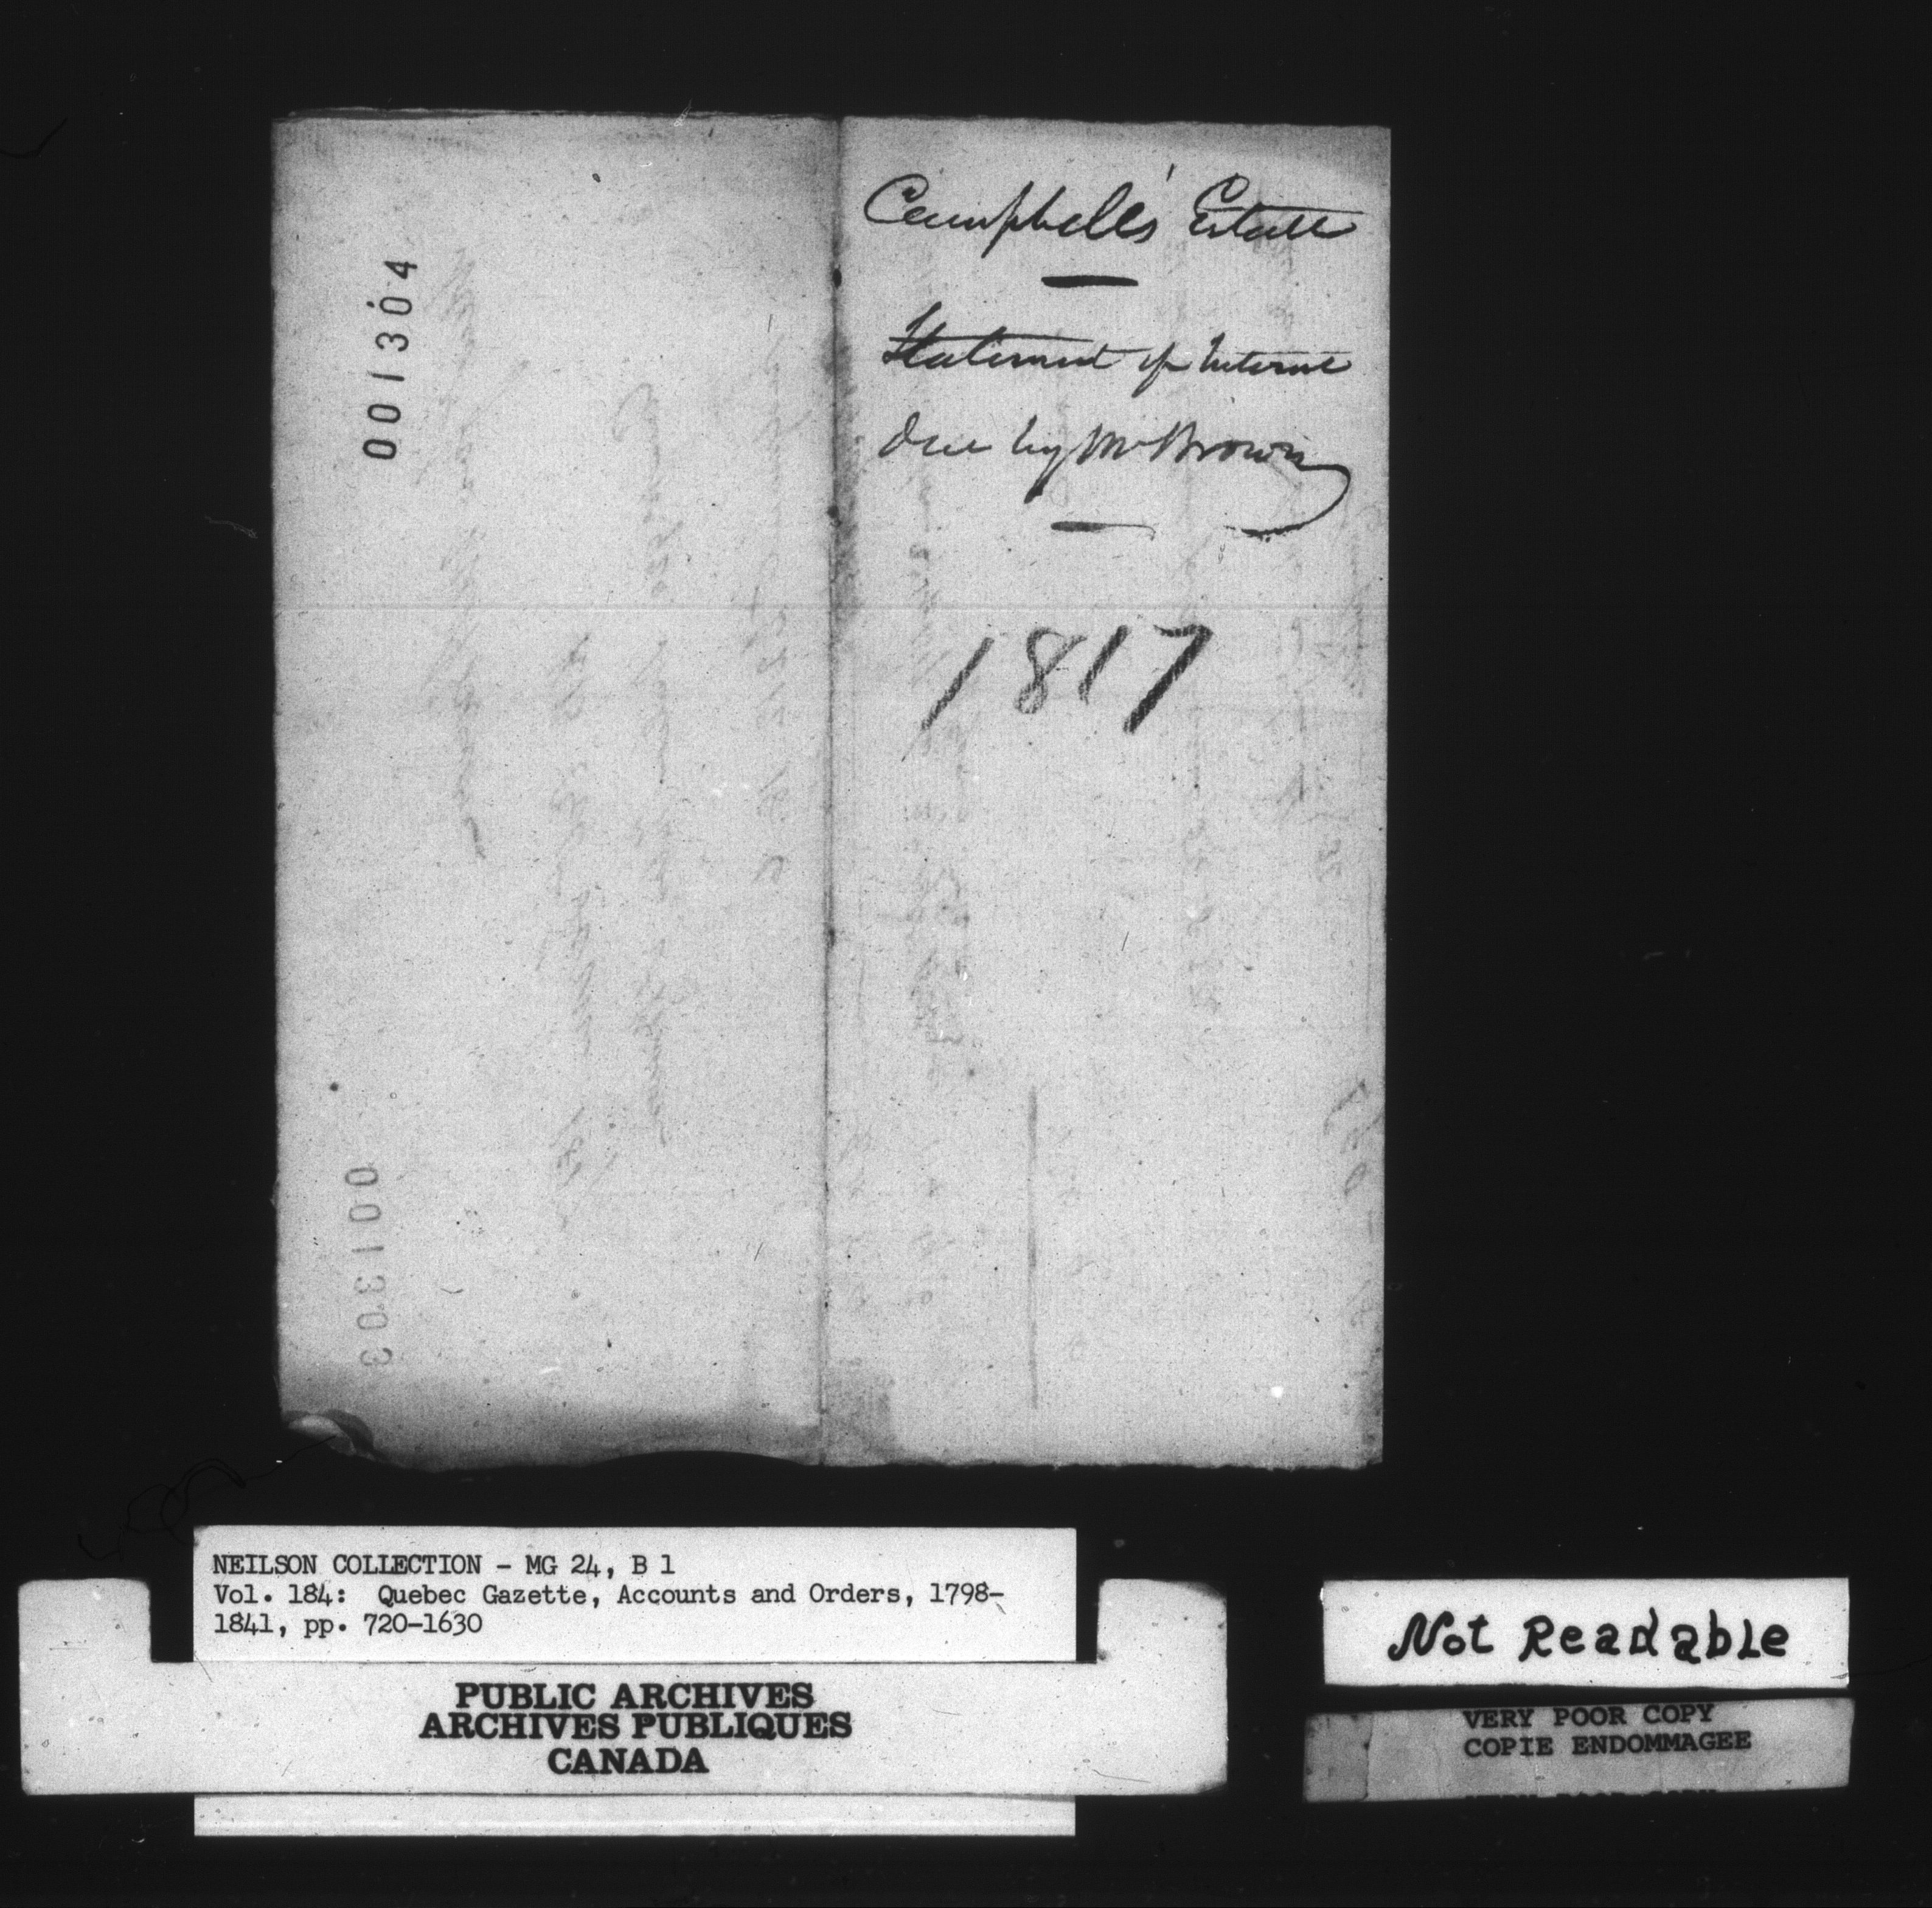 001304
Campbell's Estate
Statement of Interest
due by Mr Brown
1817
001303
NEILSON COLLECTION - MG 24, B 1
Vol. 184: Quebec Gazette, Accounts and Orders, 1798-
1841, pp. 720-1630
PUBLIC ARCHIVES
ARCHIVES PUBLIQUES
CANADA
Not Readable
VERY POOR COPY
COPIE ENDOMMAGEE